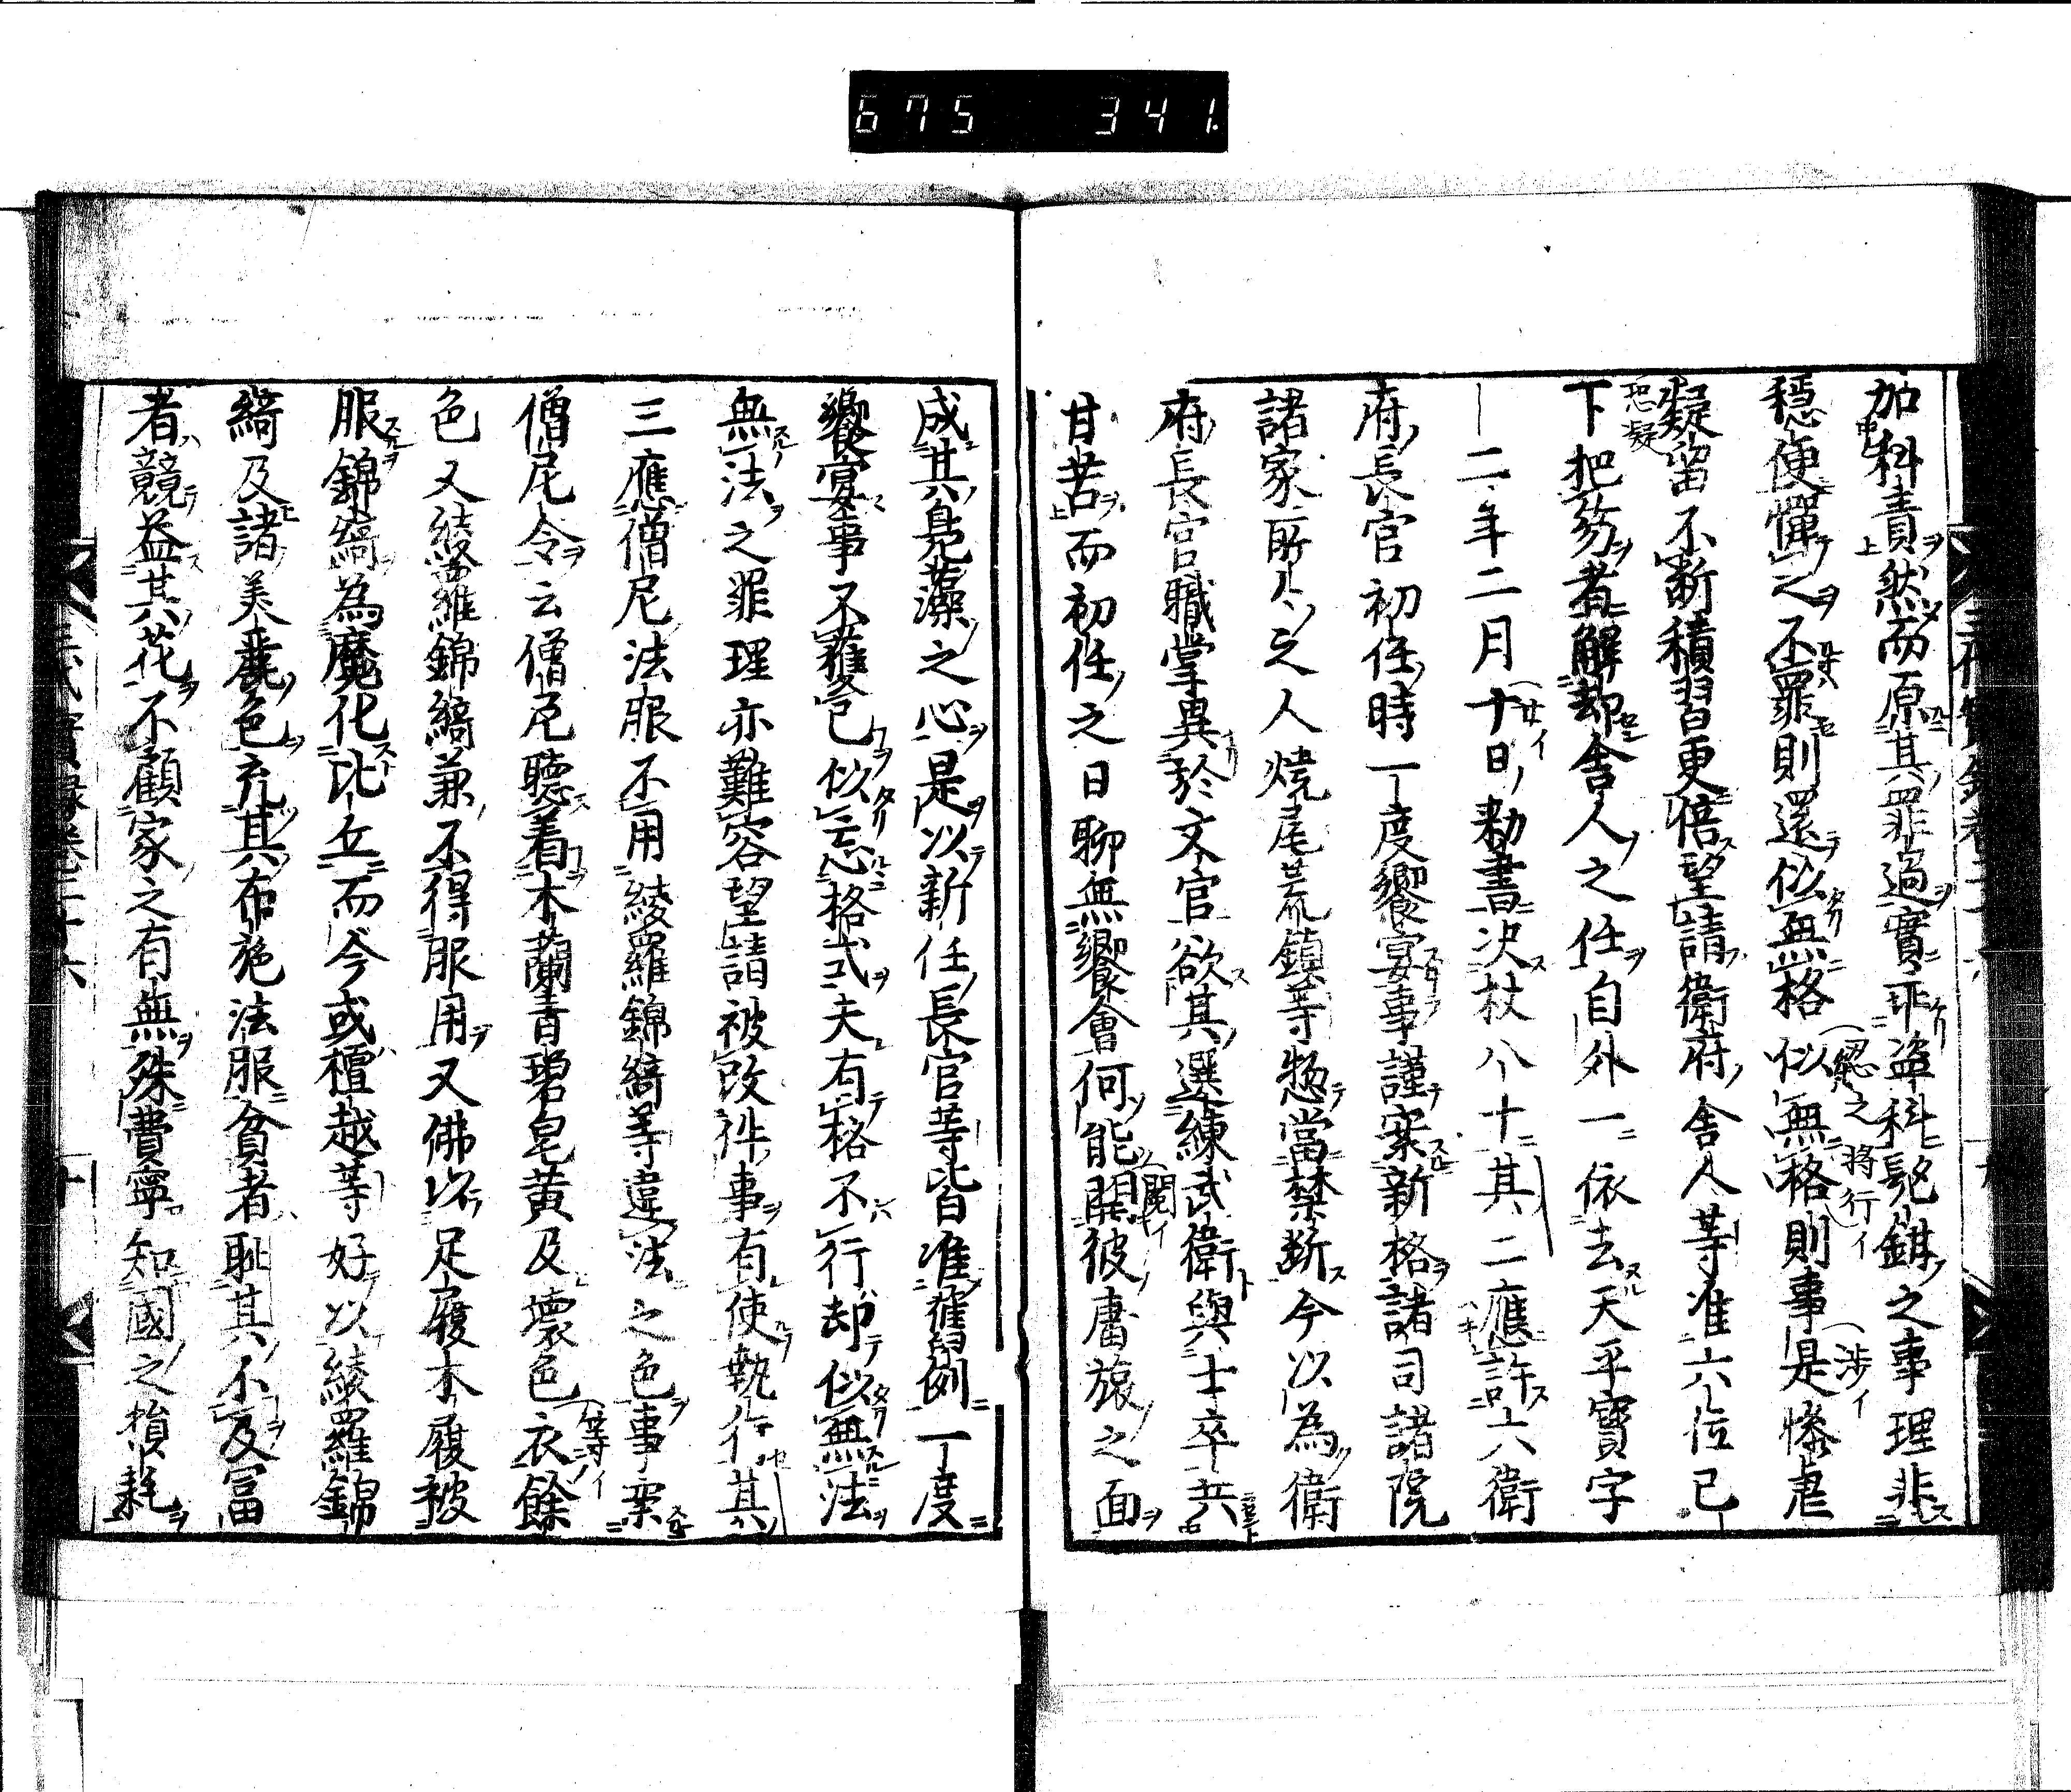 675 341.
加科責然而原其罪過實非盜科髡鉗之事理非
穩便憚之不罪則還似無格似無格則事是慘虐
疑留不斷積習更倍望請衛府舍人等准六位已
下把笏者解却舍人之任自外一依去天平寶字
二年二月十日勅書決杖八十其二應許六衛
府長官初任時一度饗宴事謹案新格諸司諸院
諸家所々之人燒尾荒鎮等惣當禁斷今以為衛
府長官職掌異於文官欲其選練武衛與士卒共
甘苦而初任之日聊無饗會何能開彼庸旅之面
成其鳧藻之心是以新任長官等皆准舊例一度
饗宴事不獲已似忘格式夫有格不行却似無法
無法之罪理亦難容望請被改件事有使執行其
三應僧尼法服不用綾羅錦綺等違法之色事案
僧尼令云僧尼聽着木蘭青碧皂黄及壞色衣餘
色又綾羅錦綺兼不得服用又佛以足履木履被
服錦綺為魔化比丘而今或檀越等好以綾羅錦
綺及諸美麗色充其布施法服貧者恥其不及冨
者競益其花不顧家之有無殊費寧知國之損耗